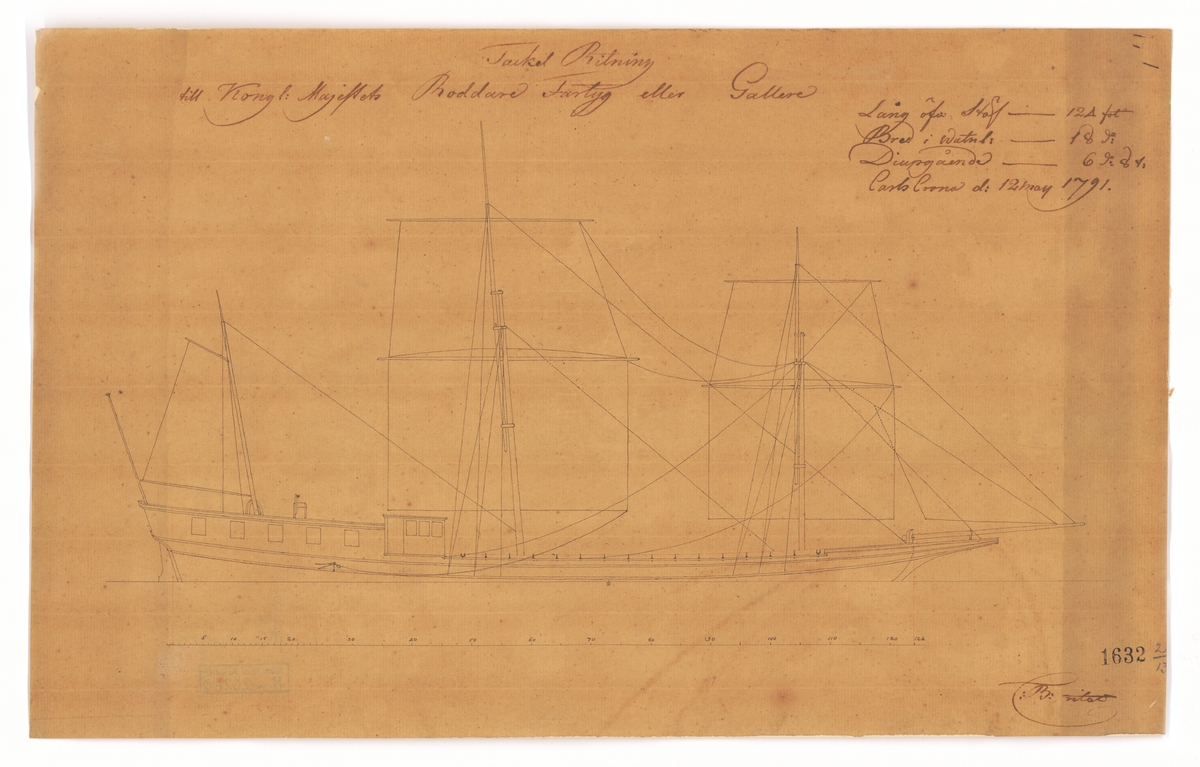 Tackel Ritning
till Kongl: Majestets Roddare Fartyg eller Gallere
Lång öfr. Stäf — 124 fot
Bred i watnl: — 18 d:
Diupgående — 6 d:
Carlscrona d: 12 may 1791.
5 10 15 20 30 20 50 60 70 90 110 120 124
1632
:B: